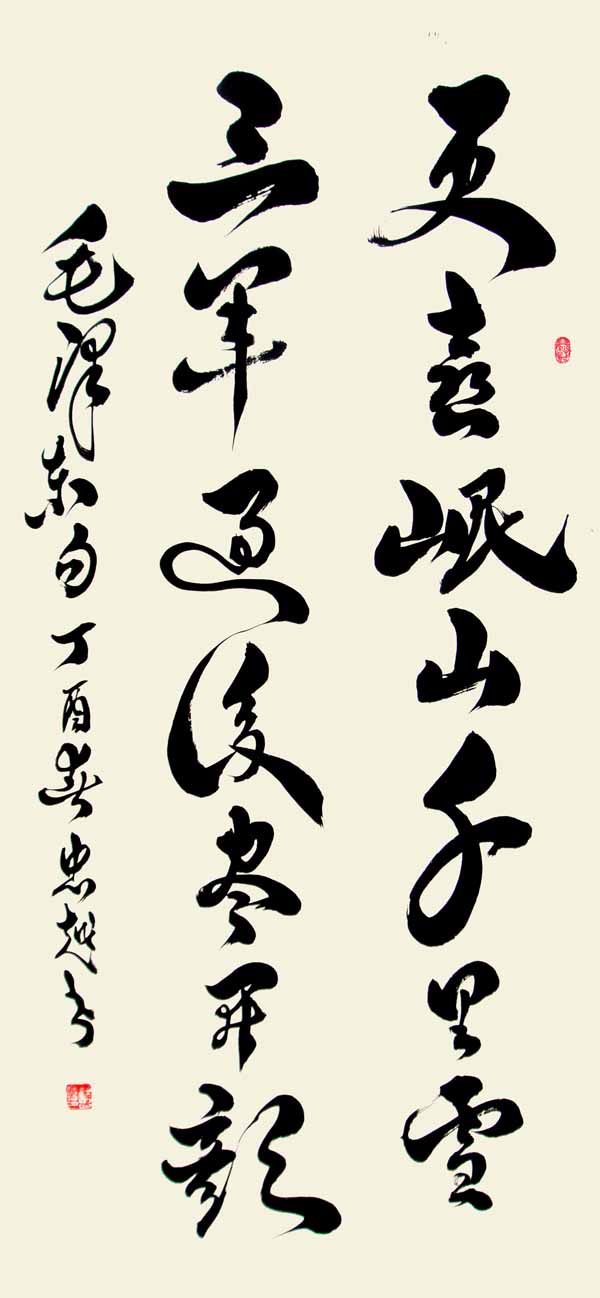 更喜岷山千里雪
三军过後尽开颜
毛泽东句丁酉春忠越书